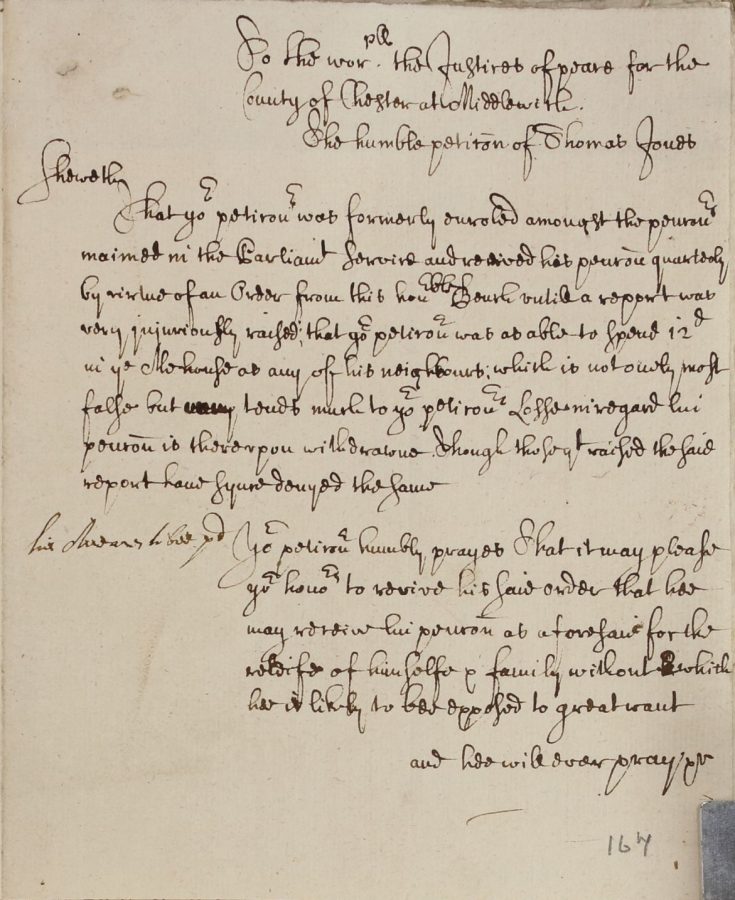 To the worpll. the Justices of peace for the
County of Chester at Middlewich.
The humble peticon of Thomas Jones
Sheweth
That yor peticonr was formerly enroled amongst the penconrs
maimed in the Parliamt service and received his pencon quarterly
by virtue of an Order from this honoble Bench untill a report was
very injuriously raised; that yor peticonr was as able to spend 12d
in ye Alehouse as any of his neighbours; which is not onely most
false but tends much to yor peticonrs Losse in regard his
pencon is thereupon withdrawne. Though those yt raised the said
report have synce denyed the same
his Arreares to bee pd
Yor peticonr humbly prayes That it may please
yor honors to revive his said order that hee
may receive his pencon as aforesaid for the
releife of himselfe & family without which
hee is likely to bee exposed to great want
and hee will ever pray &c
164